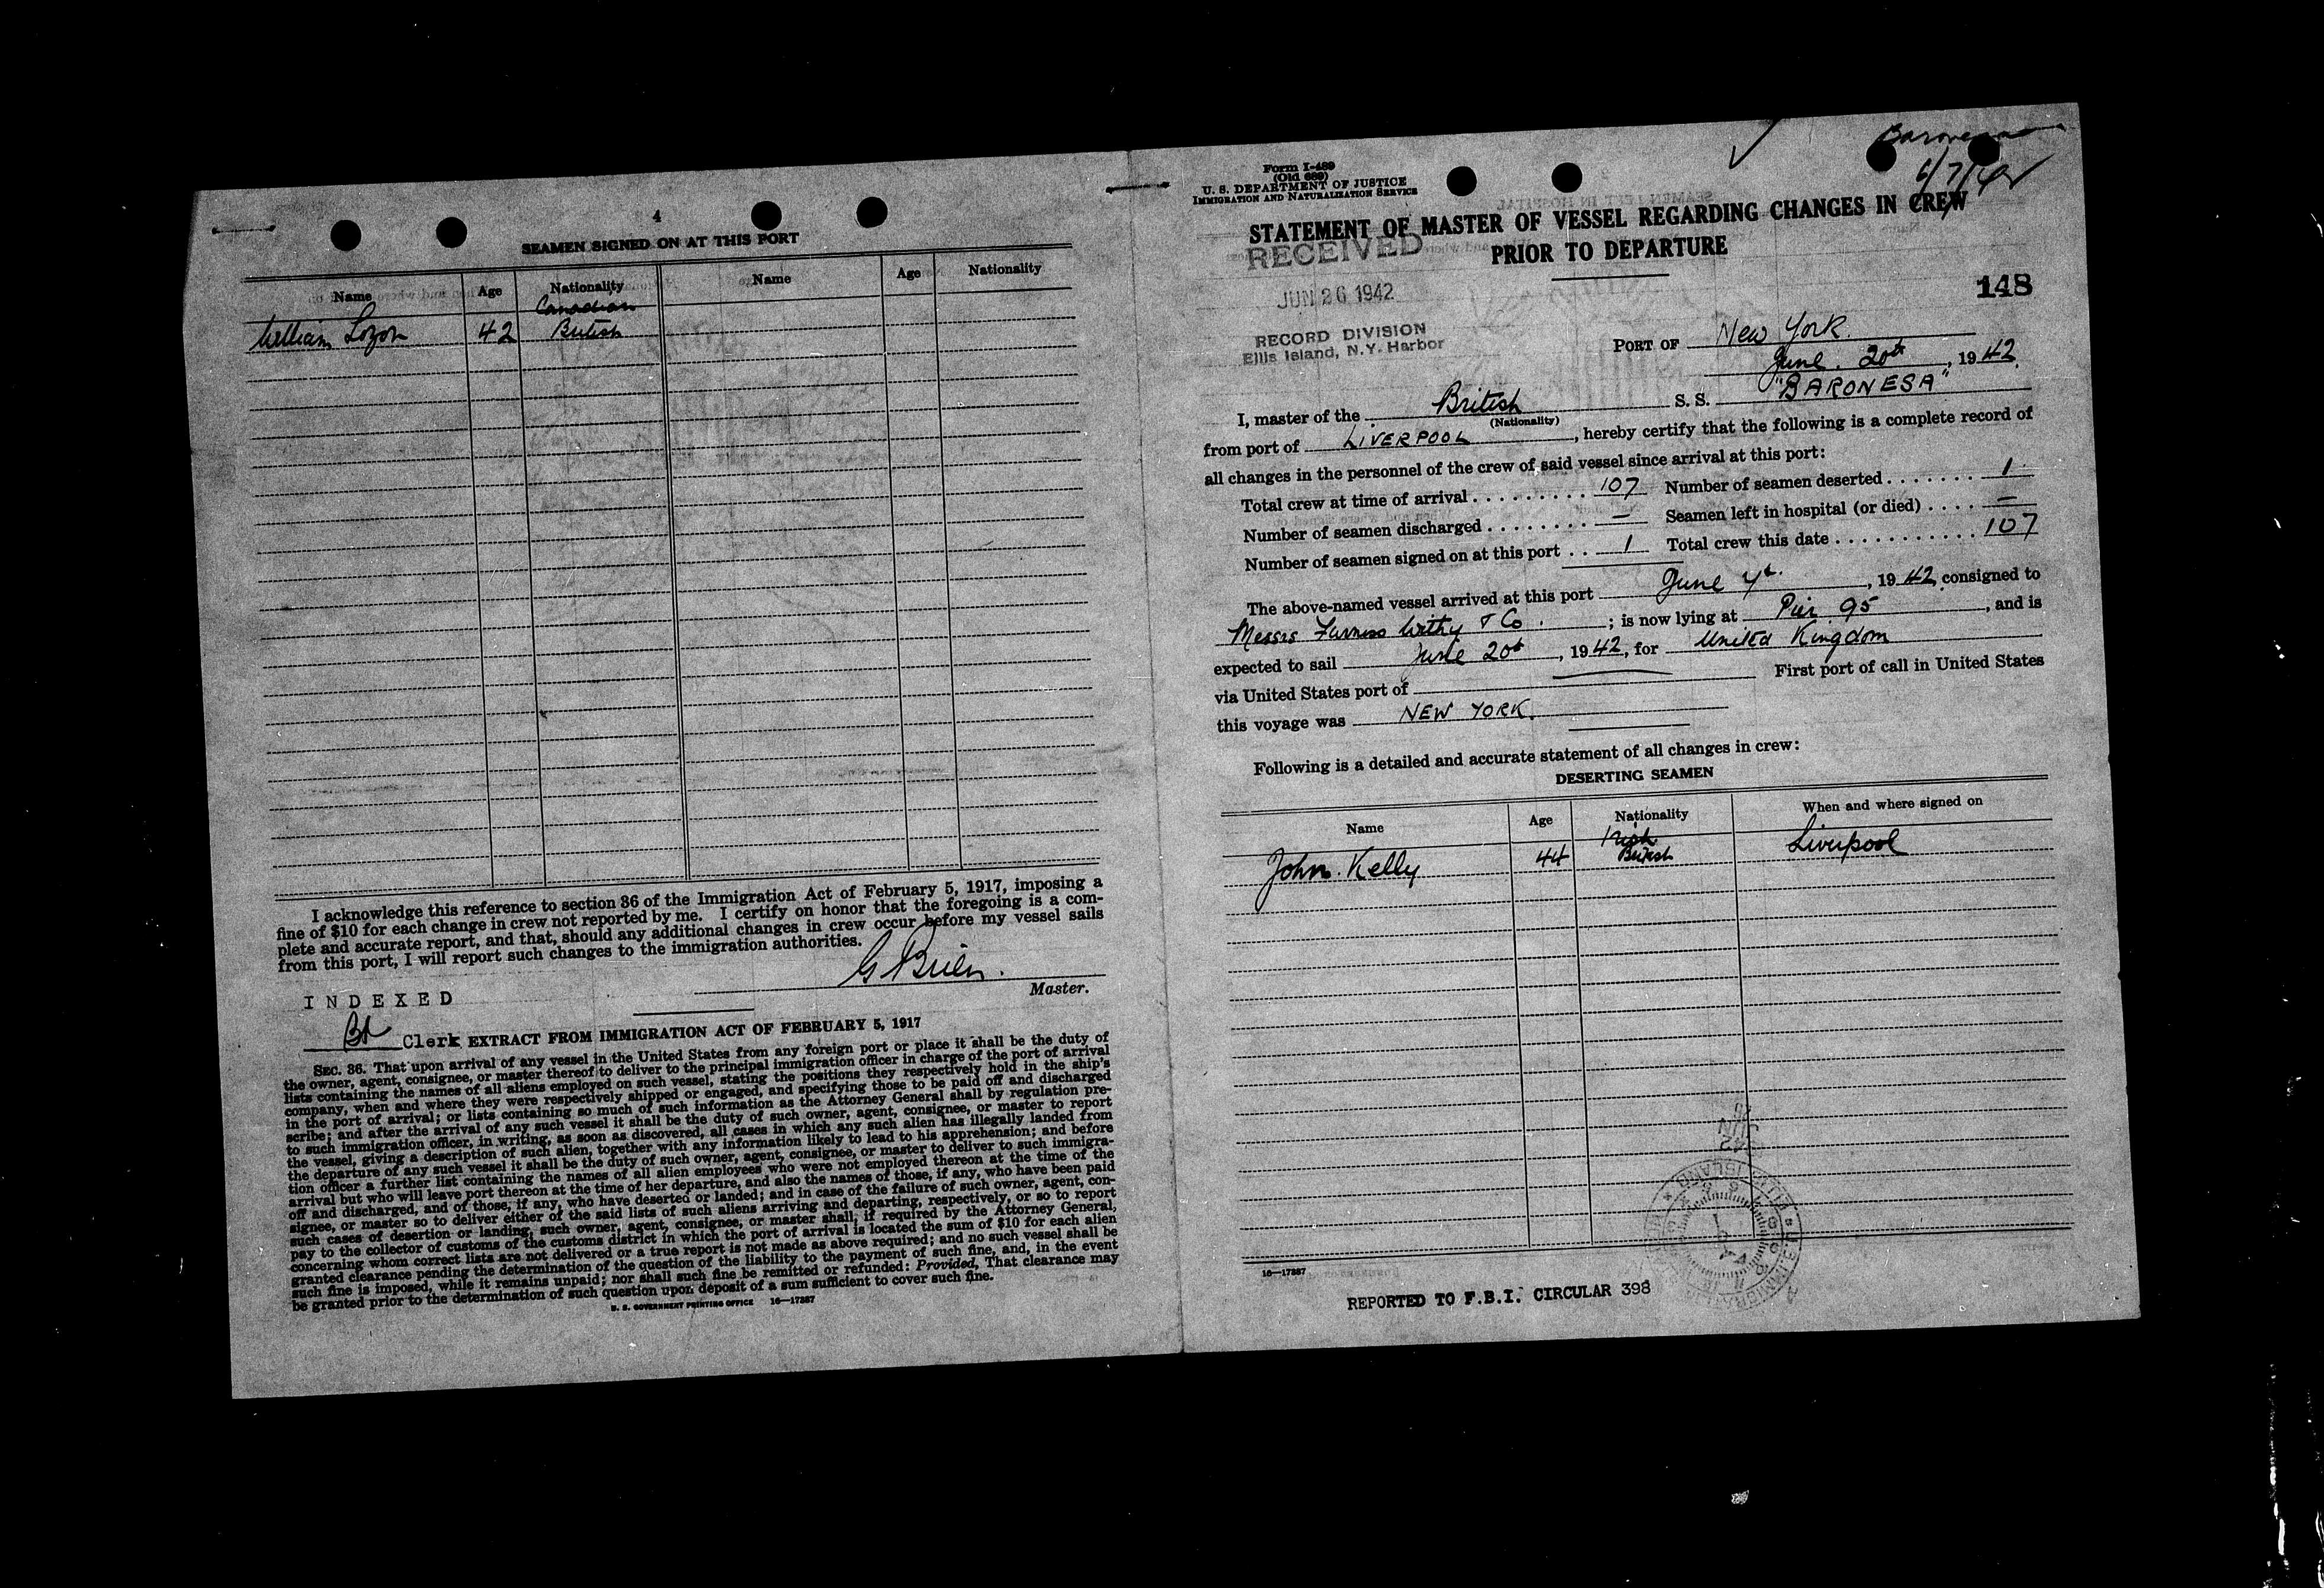 4
SEAMEN SIGNED ON AT THIS PORT
Name Age Nationality Name Age Nationality
Canadian
William Lozon 42 British
I acknowledge this reference to section 36 of the Immigration Act of February 5, 1917, imposing a
fine of $10 for each change in crew not reported by me. I certify on honor that the foregoing is a com-
plete and accurate report, and that, should any additional changes in crew occur before my vessel sails
from this port, I will report such changes to the immigration authorities.
G Brien.
Master.
INDEXED
Clerk EXTRACT FROM IMMIGRATION ACT OF FEBRUARY 5, 1917
SEC. 36. That upon arrival of any vessel in the United States from any foreign port or place it shall be the duty of
the owner, agent, consignee, or master thereof to deliver to the principal immigration officer in charge of the port of arrival
lists containing the names of all aliens employed on such vessel, stating the positions they respectively hold in the ship's
company, when and where they were respectively shipped or engaged, and specifying those to be paid off and discharged
in the port of arrival; or lists containing so much of such information as the Attorney General shall by regulation pre-
scribe; and after the arrival of any such vessel it shall be the duty of such owner, agent, consignee, or master to report
to such immigration officer, in writing, as soon as discovered, all cases in which any such alien has illegally landed from
the vessel, giving a description of such alien, together with any information likely to lead to his apprehension; and before
the departure of any such vessel it shall be the duty of such owner, agent, consignee, or master to deliver to such immigra-
tion officer a further list containing the names of all alien employees who were not employed thereon at the time of the
arrival but who will leave port thereon at the time of her departure, and also the names of those, if any, who have been paid
off and discharged, and of those, if any, who have deserted or landed; and in case of the failure of such owner, agent, con-
signee, or master so to deliver either of the said lists of such aliens arriving and departing, respectively, or so to report
such cases of desertion or landing, such owner, agent, consignee, or master shall, if required by the Attorney General,
pay to the collector of customs of the customs district in which the port of arrival is located the sum of $10 for each alien
concerning whom correct lists are not delivered or a true report is not made as above required; and no such vessel shall be
granted clearance pending the determination of the question of the liability to the payment of such fine, and, in the event
such fine is imposed, while it remains unpaid; nor shall such fine be remitted or refunded: Provided, That clearance may
be granted prior to the determination of such question upon deposit of a sum sufficient to cover such fine.
U. S. GOVERNMENT PRINTING OFFICE 16—17887
Baronesa
6/7/42
Form I-489
(Old 689)
U. S. DEPARTMENT OF JUSTICE
IMMIGRATION AND NATURALIZATION SERVICE
STATEMENT OF MASTER OF VESSEL REGARDING CHANGES IN CREW
PRIOR TO DEPARTURE
RECEIVED
JUN 26 1942
RECORD DIVISION
Ellis Island, N.Y. Harbor
148
PORT OF New York.
June. 20th, 1942.
I, master of the British S. S. "BARONESA"
(Nationality)
from port of LIVERPOOL, hereby certify that the following is a complete record of
all changes in the personnel of the crew of said vessel since arrival at this port:
Total crew at time of arrival 107 Number of seamen deserted 1
Number of seamen discharged — Seamen left in hospital (or died) —
Number of seamen signed on at this port 1 Total crew this date 107
The above-named vessel arrived at this port June 7th., 1942, consigned to
Messrs Furness Withy & Co.; is now lying at Pier. 95, and is
expected to sail June 20th, 1942, for United Kingdom
via United States port of — First port of call in United States
this voyage was NEW YORK.
Following is a detailed and accurate statement of all changes in crew:
DESERTING SEAMEN
Name Age Nationality When and where signed on
Irish
John. Kelly 44 British Liverpool
16—17887
REPORTED TO F.B.I. CIRCULAR 398